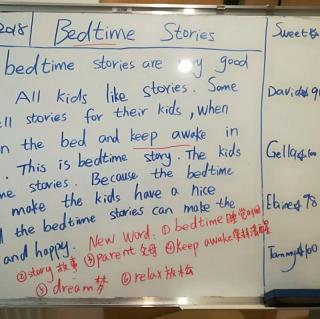 2018 Bedtime Stories
bedtime stories are good
All kids like stories. Some
stories for their kids, when
the bed and keep awake in
. This is bedtime story. The kids
stories. Because the bedtime
make the kids have a nice
the bedtime stories can make the
and happy. New Word. ① bedtime
②story 故事 ③parent 父母 ④keep awake 保持清醒
⑤ dream 梦 ⑥ relax 放松
Sweet
David
Gella
Elaine
Tammy